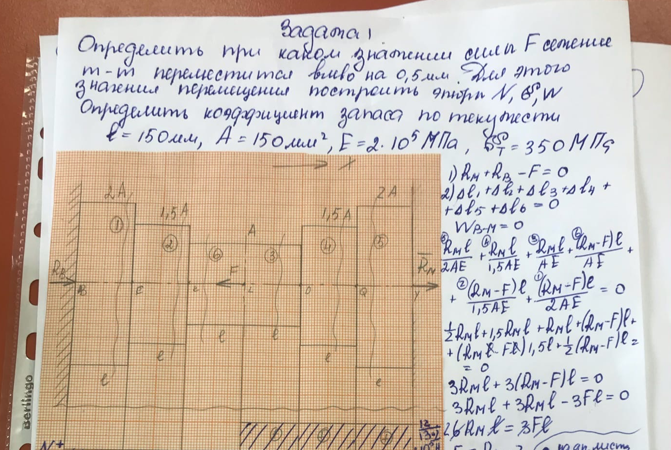 Задача 1
Определить при каком значении силы F сечение
m-m переместится влево на 0,5 мм. Для этого
значения перемещения построить эпюры N, σ, W
Определить коэффициент запаса по текучести
l = 150мм, A = 150мм², E = 2·10⁵ МПа, σт = 350 МПа
x
2A
1,5A
A
1,5A
2A
① ② ⑥ ③ ④ ⑤
F
l
l
l
l
l
l
1) Rм + RВ - F = 0
2) Δl1 + Δl2 + Δl3 + Δl4 +
+ Δl5 + Δl6 = 0
WВ-М = 0
Rмl/2AE + Rмl/1,5AE + Rмl/AE + (Rм-F)l/AE +
+ (Rм-F)l/1,5AE + (Rм-F)l/2AE = 0
½Rмl + 1,5Rмl + Rмl + (Rм-F)l +
+ (Rмl - Fl) 1,5l + ½(Rм-F)l =
= 0
3Rмl + 3(Rм-F)l = 0
3Rмl + 3Rмl - 3Fl = 0
6Rмl = 3Fl
N
Berlingo